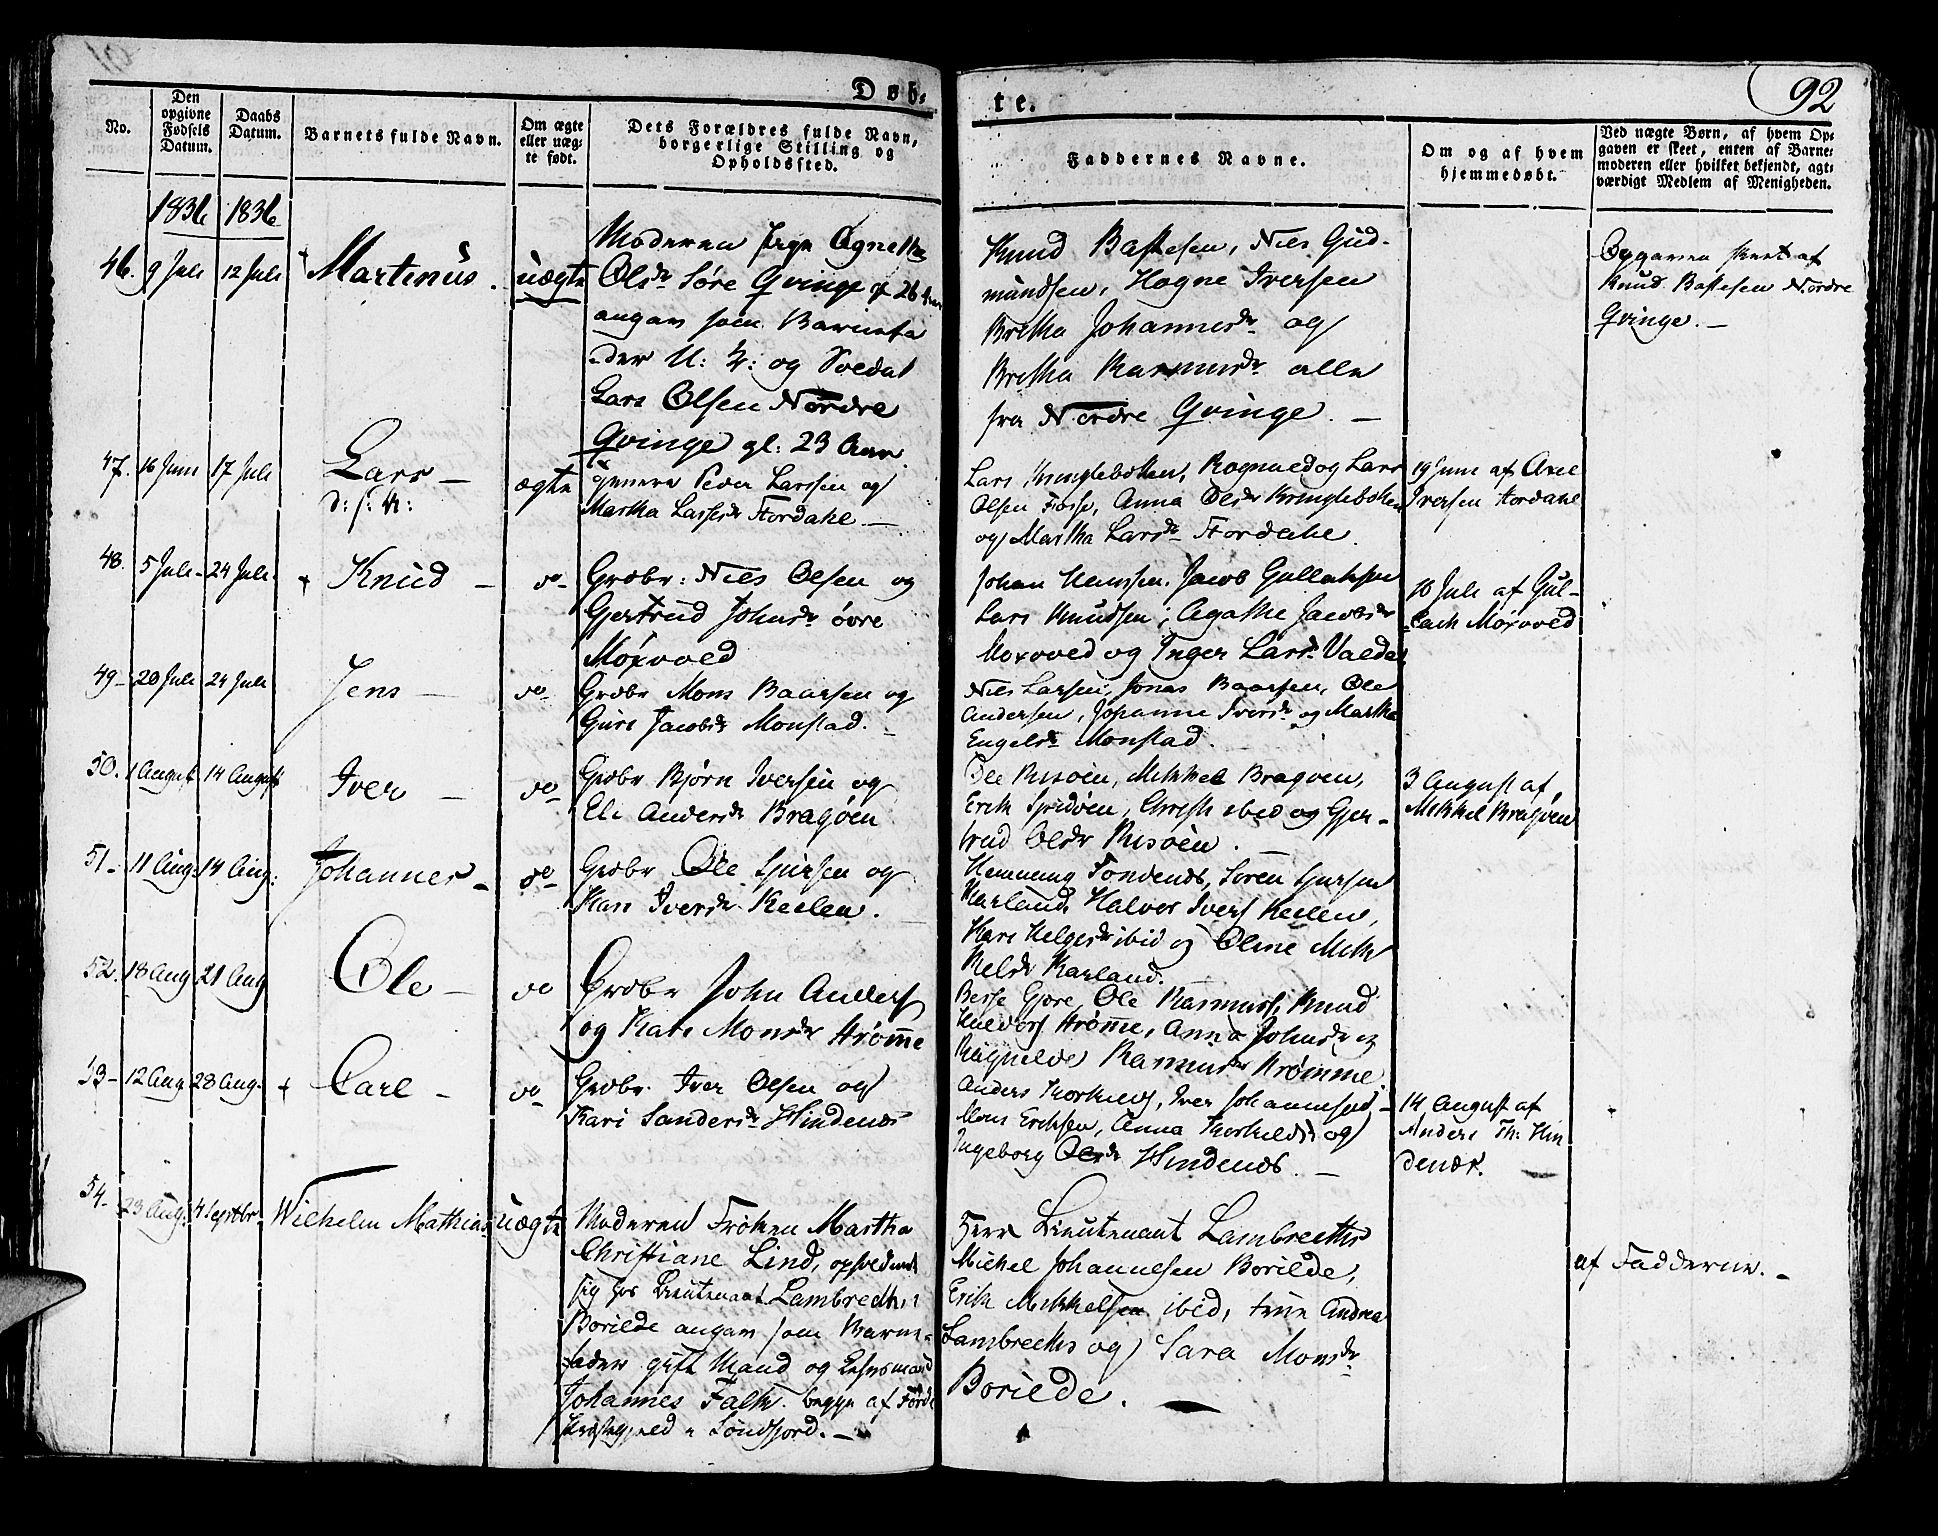 Døb-
te.
92
No.
Den opgivne Fødsels Datum.
Daabs Datum.
Barnets fulde Navn.
Om ægte eller uæg-
te født.
Dets Forældres fulde Navn,
borgerlige Stilling og
Opholdssted.
Faddernes Navne.
Om og af hvem
hjemmedøbt.
Ved uægte Børn, af hvem Op-
gaven er skeet, enten af Barne-
moderen eller hvilket bekjendt, agt-
værdigt Medlem af Menigheden.
1836 1836
46. 9 Juli 12 Juli Martinus. uægte
Moderen Pige Agnethe
Olsdr Søre Qvinge
angav som Barnefa
der U: K: og Soldat
Lars Olsen Nordre
Qvinge gl: 23 Aar.
Knud Bastesen, Niels Gud-
mundsen, Hogne Iversen
Britha Johannesdr og
Britha Rasmusdr alle
fra Nordre Qvinge. —
Opgaven skeet af
Knud Bastesen Nordre
Qvinge. —
47. 16 Juni 17 Juli Lars — ægte
Peder Larssen og
Martha Larsdr Hordahl —
Lars Kringlebotten, Rognald og Lars
Olsen Fosse, Anna Olsdr Kringlebotten
og Martha Larsdr Hordahl.
19 Juni af
Iversen Hordahl
48. 5 Juli- 24 Juli. Knud — do-
Grdbr: Niels Olsen og
Gjertrud Johnsdr øvre
Moxvold
Johan Hanssen, Jacob Gullaksen
Lars Knudsen, Agathe Jacobsdr
Moxvold og Inger Larsdr
10 Juli af Gul-
lach Moxvold
49- 20 Juli 24 Juli Jens — do-
Grdbr Mons Baarsen og
Guri Jacobsdr Monstad. —
Niels Larsen, Jonas Baarsen, Ole
Andersen, Johanne Iversdr og Martha
Engelsdr Monstad.
50. 1 August 14 August Iver — do-
Grdbr Bjørn Iversen og
Eli Andersdr Bragøen
Ole Risøen, Mikkel Bragøen,
Erik ibid og Gjer-
trud Olsdr Risøen.
3 August af
Mikkel Bragøen
51- 11 Aug: 14 Aug: Johannes — do-
Grdbr Ole Sjursen og
Kari Iversdr Keilen.
Henning Søren Sjursen
Karland, Halvor Ivers Keilen,
Kari Helgesdr ibid og Oline Mik
kelsdr Karland.
52. 18 Aug 21 Aug Ole — do
Grdbr John Anders
og Kari Monsdr Strømme
Gjøre, Ole Rasmuss, Knud
Haldors Strømme, Anna Johnsdr og
Ragnilde Rasmusdr Strømme
53- 12 Aug 28 Aug- Carl — do-
Grdbr. Iver Olsen og
Kari Sandersdr Hindenæs
Anders Thorkilds, Iver Johannesen,
Mons Eriksen, Anna Thorkildsdr og
Ingeborg Olsdr Hindenæs. —
14 August af
Anders Th: Hin
denæs.
54- 23 Aug: 4 Septbr Wilhelm Mathias uægte
Moderen Frøken Martha
Christiane Lind, opholdende
sig hos Lieutenant Lambrechts i
Borilde angav som Barne-
fader gift Mand og Lehnsmand
Johannes Falk begge af Førde
Præstegjeld i Søndfjord. —
Herr Lieutenant Lambrechts
Mickel Johannesen Borilde,
Erik Mikkelsen ibid, Andrea
Lambrechts og Sara Monsdr
Borilde. —
af Fadderne. —